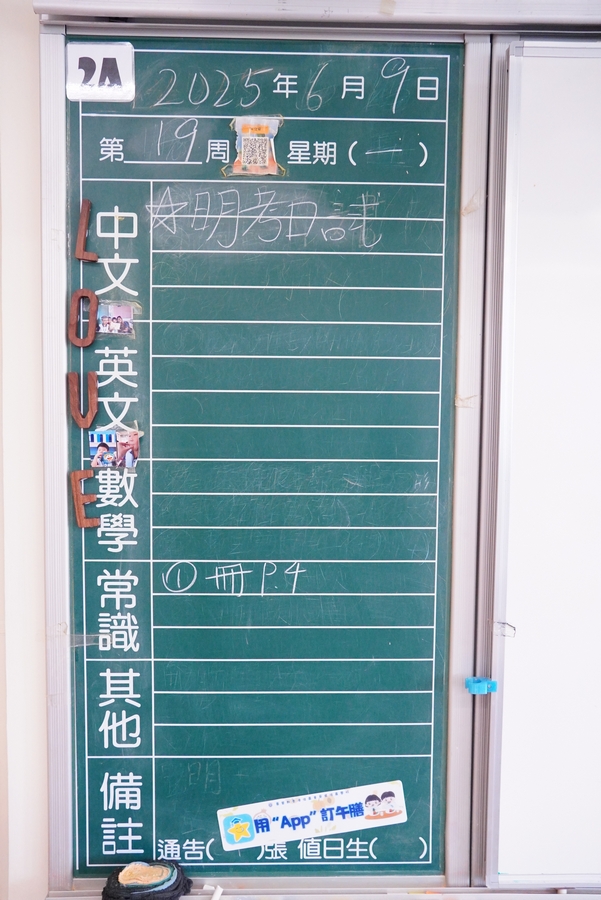 2A
2025年6月9日
第19周 星期(一)
LOVE
中文 ☆明考日試
英文
數學
常識 ① 冊P.4
其他
備註
用“App”訂午膳
通告( )張 值日生( )